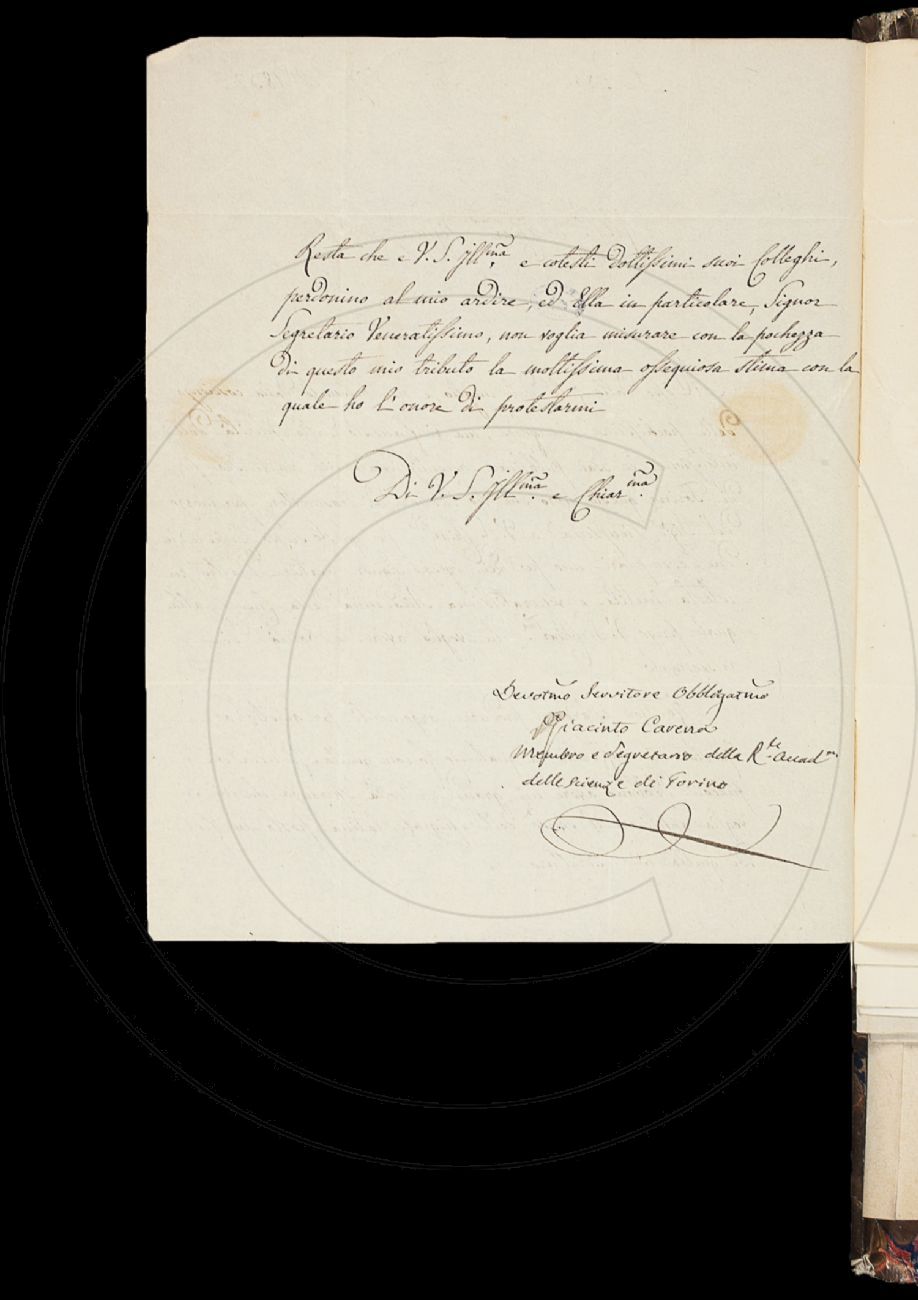 Resta che e V. S. Illma, e cotesti dottissimi suoi Colleghi,
perdonino al mio ardire, ed Ella in particolare, Signor
Segretario Veneratissimo, non voglia misurare con la pochezza
di questo mio tributo la moltissima ossequiosa stima con la
quale ho l'onore di protestarmi
Di V. S. Illma. e Chiarma.
Devotmo Servitore Obbligatmo
Giacinto Carena
Membro e Segretario della Rle. Accadm
delle Scienze di Torino